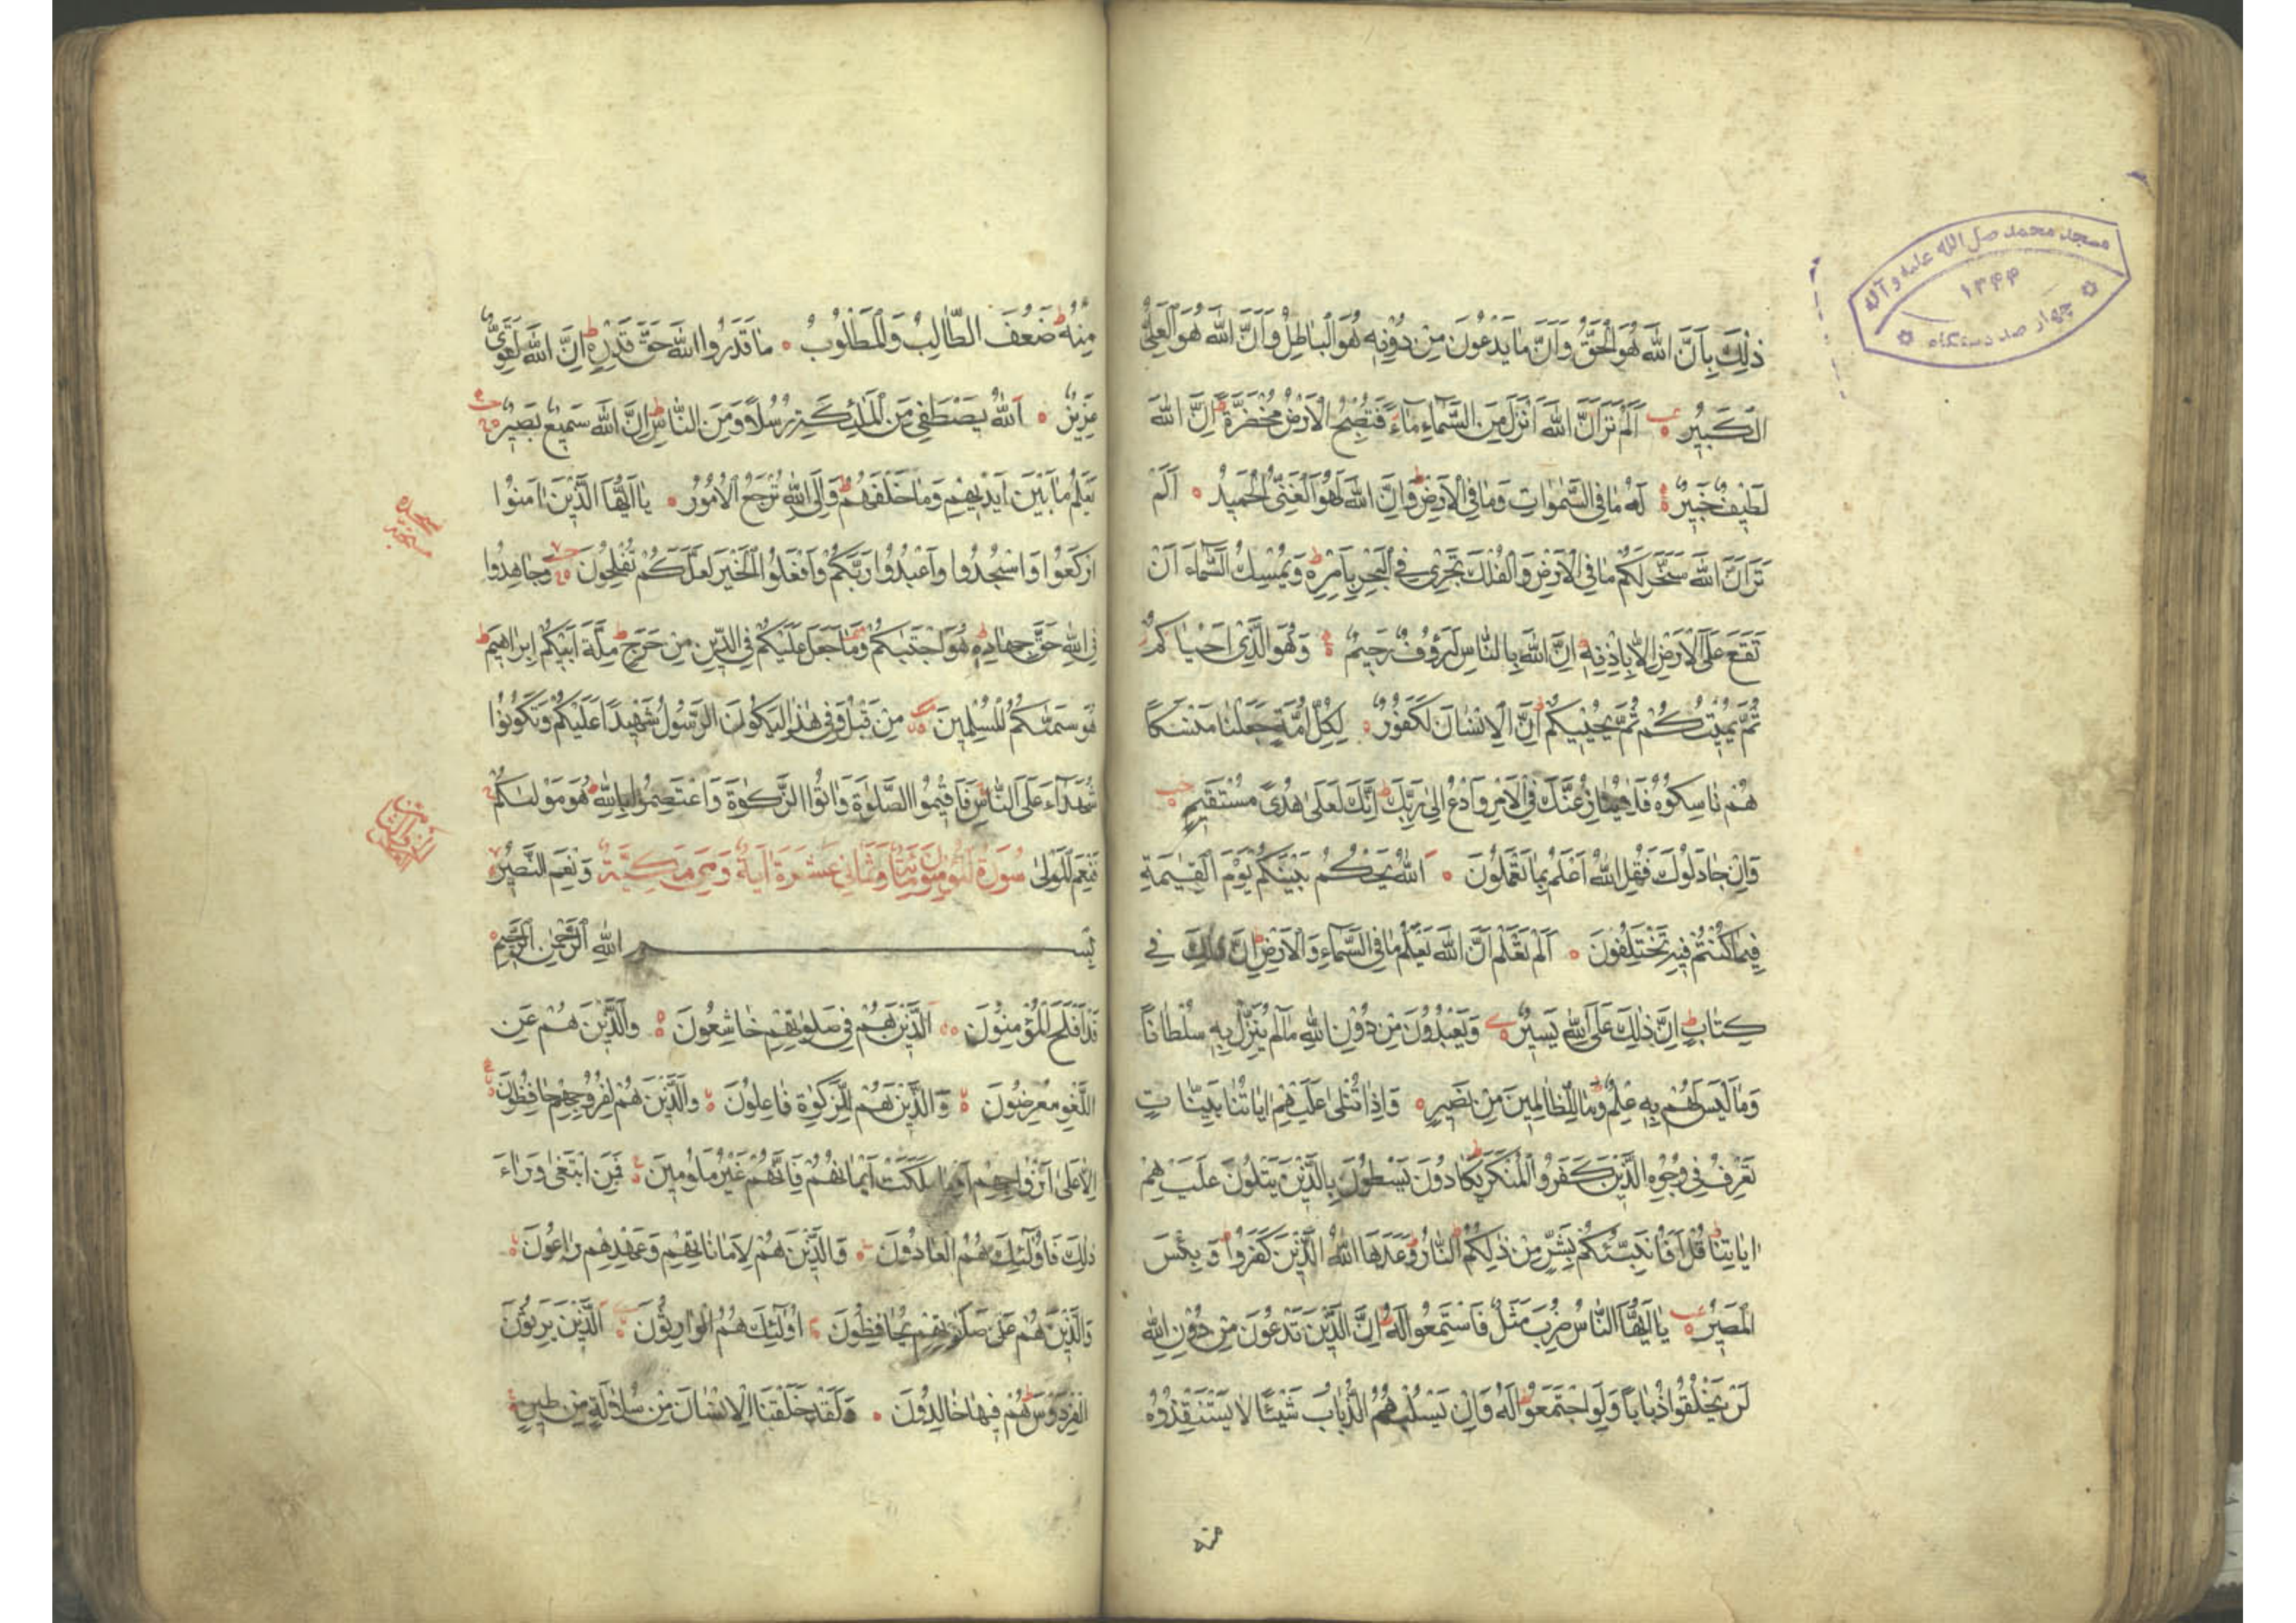 مسجد محمد صل الله علیه و آله
۱۳۴۴
چهار صد دستگاه
ذٰلِكَ بِاَنَّ اللّٰهَ هُوَ الْحَقُّ وَاَنَّ مٰا يَدْعُونَ مِنْ دُوْنِهٖ هُوَ الْبٰاطِلُ وَاَنَّ اللّٰهَ هُوَ الْعَلِىُّ
الْكَبِيْرُ اَلَمْ تَرَ اَنَّ اللّٰهَ اَنْزَلَ مِنَ السَّمٰآءِ مٰآءً فَتُصْبِحُ الْاَرْضُ مُخْضَرَّةً ط اِنَّ اللّٰهَ
لَطِيْفٌ خَبِيْرٌ لَهُ مٰا فِى السَّمٰوٰاتِ وَمٰا فِى الْاَرْضِ ط وَاِنَّ اللّٰهَ لَهُوَ الْغَنِىُّ الْحَمِيْدُ اَلَمْ
تَرَ اَنَّ اللّٰهَ سَخَّرَ لَكُمْ مٰا فِى الْاَرْضِ وَالْفُلْكَ تَجْرِىْ فِى الْبَحْرِ بِاَمْرِهٖ ط وَيُمْسِكُ السَّمٰآءَ اَنْ
تَقَعَ عَلَى الْاَرْضِ اِلّٰا بِاِذْنِهٖ اِنَّ اللّٰهَ بِالنّٰاسِ لَرَؤُفٌ رَحِيْمٌ وَهُوَ الَّذِىْ اَحْيٰاكُمْ
ثُمَّ يُمِيْتُكُمْ ثُمَّ يُحْيِيْكُمْ ط اِنَّ الْاِنْسٰانَ لَكَفُوْرٌ لِكُلِّ اُمَّةٍ جَعَلْنٰا مَنْسَكًا
هُمْ نٰاسِكُوْهُ فَلٰا يُنٰازِعُنَّكَ فِى الْاَمْرِ وَادْعُ اِلىٰ رَبِّكَ ط اِنَّكَ لَعَلىٰ هُدًى مُسْتَقِيْمٍ
وَاِنْ جٰادَلُوْكَ فَقُلِ اللّٰهُ اَعْلَمُ بِمٰا تَعْمَلُوْنَ اَللّٰهُ يَحْكُمُ بَيْنَكُمْ يَوْمَ الْقِيٰمَةِ
فِيْمٰا كُنْتُمْ فِيْهِ تَخْتَلِفُوْنَ اَلَمْ تَعْلَمْ اَنَّ اللّٰهَ يَعْلَمُ مٰا فِى السَّمٰآءِ وَالْاَرْضِ ط اِنَّ ذٰلِكَ فِى
كِتٰابٍ ط اِنَّ ذٰلِكَ عَلَى اللّٰهِ يَسِيْرٌ وَيَعْبُدُوْنَ مِنْ دُوْنِ اللّٰهِ مٰا لَمْ يُنَزِّلْ بِهٖ سُلْطٰانًا
وَمٰا لَيْسَ لَهُمْ بِهٖ عِلْمٌ ط وَمٰا لِلظّٰالِمِيْنَ مِنْ نَصِيْرٍ وَاِذٰا تُتْلىٰ عَلَيْهِمْ اٰيٰاتُنٰا بَيِّنٰاتٍ
تَعْرِفُ فِى وُجُوْهِ الَّذِيْنَ كَفَرُوا الْمُنْكَرَ ط يَكٰادُوْنَ يَسْطُوْنَ بِالَّذِيْنَ يَتْلُوْنَ عَلَيْهِمْ
اٰيٰاتِنٰا ط قُلْ اَفَاُنَبِّئُكُمْ بِشَرٍّ مِنْ ذٰلِكُمْ ط النّٰارُ وَعَدَهَا اللّٰهُ الَّذِيْنَ كَفَرُوْا وَبِئْسَ
الْمَصِيْرُ يٰا اَيُّهَا النّٰاسُ ضُرِبَ مَثَلٌ فَاسْتَمِعُوْا لَهُ ط اِنَّ الَّذِيْنَ تَدْعُوْنَ مِنْ دُوْنِ اللّٰهِ
لَنْ يَخْلُقُوْا ذُبٰابًا وَلَوِ اجْتَمَعُوْا لَهُ ط وَاِنْ يَسْلُبْهُمُ الذُّبٰابُ شَيْئًا لٰا يَسْتَنْقِذُوْهُ
منه
مِنْهُ ط ضَعُفَ الطّٰالِبُ وَالْمَطْلُوْبُ مٰا قَدَرُوا اللّٰهَ حَقَّ قَدْرِهٖ ط اِنَّ اللّٰهَ لَقَوِىٌّ
عَزِيْزٌ اَللّٰهُ يَصْطَفِىْ مِنَ الْمَلٰئِكَةِ رُسُلًا وَمِنَ النّٰاسِ ط اِنَّ اللّٰهَ سَمِيْعٌ بَصِيْرٌ
يَعْلَمُ مٰا بَيْنَ اَيْدِيْهِمْ وَمٰا خَلْفَهُمْ ط وَاِلَى اللّٰهِ تُرْجَعُ الْاُمُوْرُ يٰا اَيُّهَا الَّذِيْنَ اٰمَنُوْا
ارْكَعُوْا وَاسْجُدُوْا وَاعْبُدُوْا رَبَّكُمْ وَافْعَلُوا الْخَيْرَ لَعَلَّكُمْ تُفْلِحُوْنَ وَجٰاهِدُوْا
فِى اللّٰهِ حَقَّ جِهٰادِهٖ ط هُوَ اجْتَبٰىكُمْ وَمٰا جَعَلَ عَلَيْكُمْ فِى الدِّيْنِ مِنْ حَرَجٍ ط مِلَّةَ اَبِيْكُمْ اِبْرٰاهِيْمَ ط
هُوَ سَمّٰىكُمُ الْمُسْلِمِيْنَ مِنْ قَبْلُ وَفِىْ هٰذٰا لِيَكُوْنَ الرَّسُوْلُ شَهِيْدًا عَلَيْكُمْ وَتَكُوْنُوْا
شُهَدٰآءَ عَلَى النّٰاسِ فَاَقِيْمُوا الصَّلٰوةَ وَاٰتُوا الزَّكٰوةَ وَاعْتَصِمُوْا بِاللّٰهِ ط هُوَ مَوْلٰىكُمْ
فَنِعْمَ الْمَوْلىٰ سُوْرَةُ الْمُؤْمِنُوْنَ مِائَةٌ وَثَمٰانِىْ عَشَرَةَ اٰيَةً وَهِىَ مَكِيَّةٌ وَنِعْمَ النَّصِيْرُ
بِسْمِ اللّٰهِ الرَّحْمٰنِ الرَّحِيْمِ
قَدْ اَفْلَحَ الْمُؤْمِنُوْنَ اَلَّذِيْنَ هُمْ فِى صَلٰوتِهِمْ خٰاشِعُوْنَ وَالَّذِيْنَ هُمْ عَنِ
اللَّغْوِ مُعْرِضُوْنَ وَالَّذِيْنَ هُمْ لِلزَّكٰوةِ فٰاعِلُوْنَ وَالَّذِيْنَ هُمْ لِفُرُوْجِهِمْ حٰافِظُوْنَ
اِلّٰا عَلىٰ اَزْوٰاجِهِمْ اَوْ مٰا مَلَكَتْ اَيْمٰانُهُمْ فَاِنَّهُمْ غَيْرُ مَلُوْمِيْنَ فَمَنِ ابْتَغىٰ وَرٰاءَ
ذٰلِكَ فَاُولٰئِكَ هُمُ الْعٰادُوْنَ وَالَّذِيْنَ هُمْ لِاَمٰانٰاتِهِمْ وَعَهْدِهِمْ رٰاعُوْنَ
وَالَّذِيْنَ هُمْ عَلىٰ صَلَوٰتِهِمْ يُحٰافِظُوْنَ اُولٰئِكَ هُمُ الْوٰارِثُوْنَ اَلَّذِيْنَ يَرِثُوْنَ
الْفِرْدَوْسَ ط هُمْ فِيْهٰا خٰالِدُوْنَ وَلَقَدْ خَلَقْنَا الْاِنْسٰانَ مِنْ سُلٰالَةٍ مِنْ طِيْنٍ